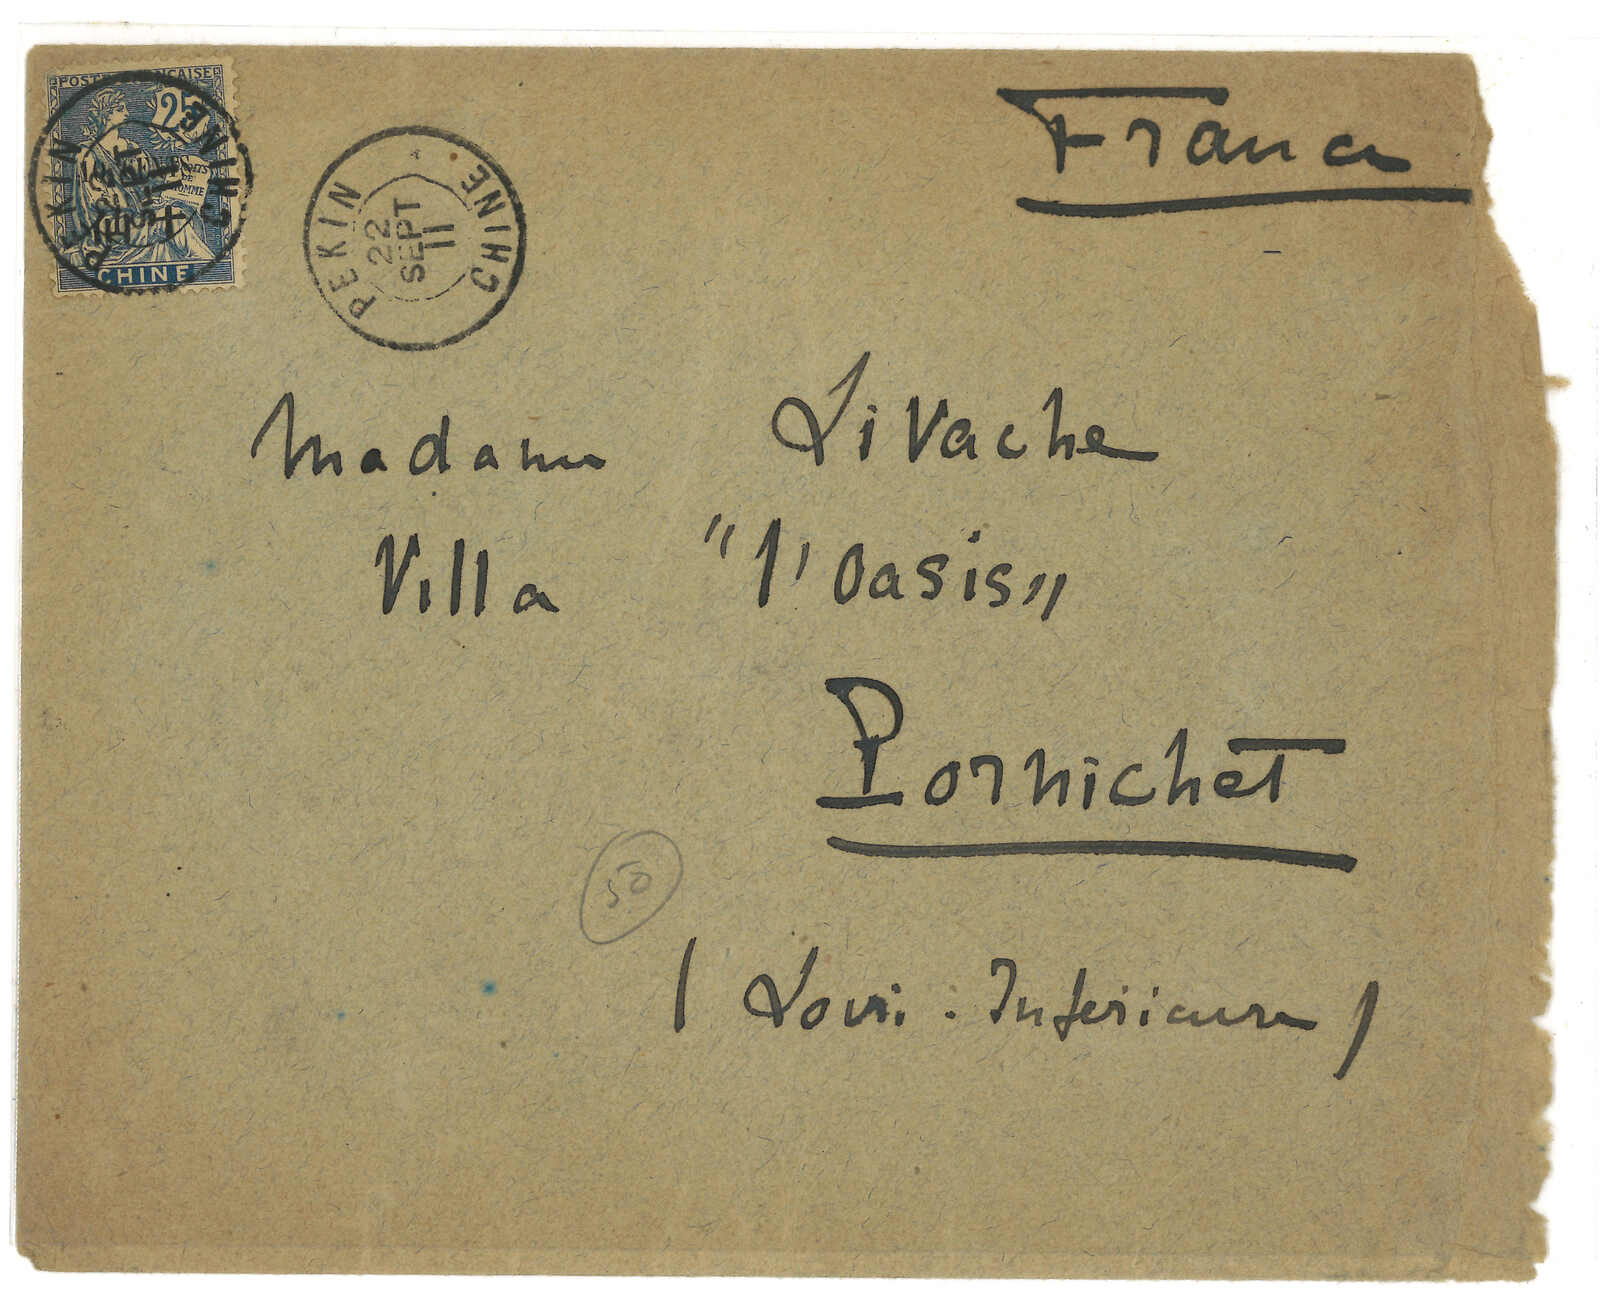 POSTE FRANÇAISE
25
CHINE
PEKIN
CHINE
PEKIN
22
SEPT
11
CHINE
France
Madame Livache
Villa "l'Oasis"
Pornichet
50
(Loire-Inférieure)